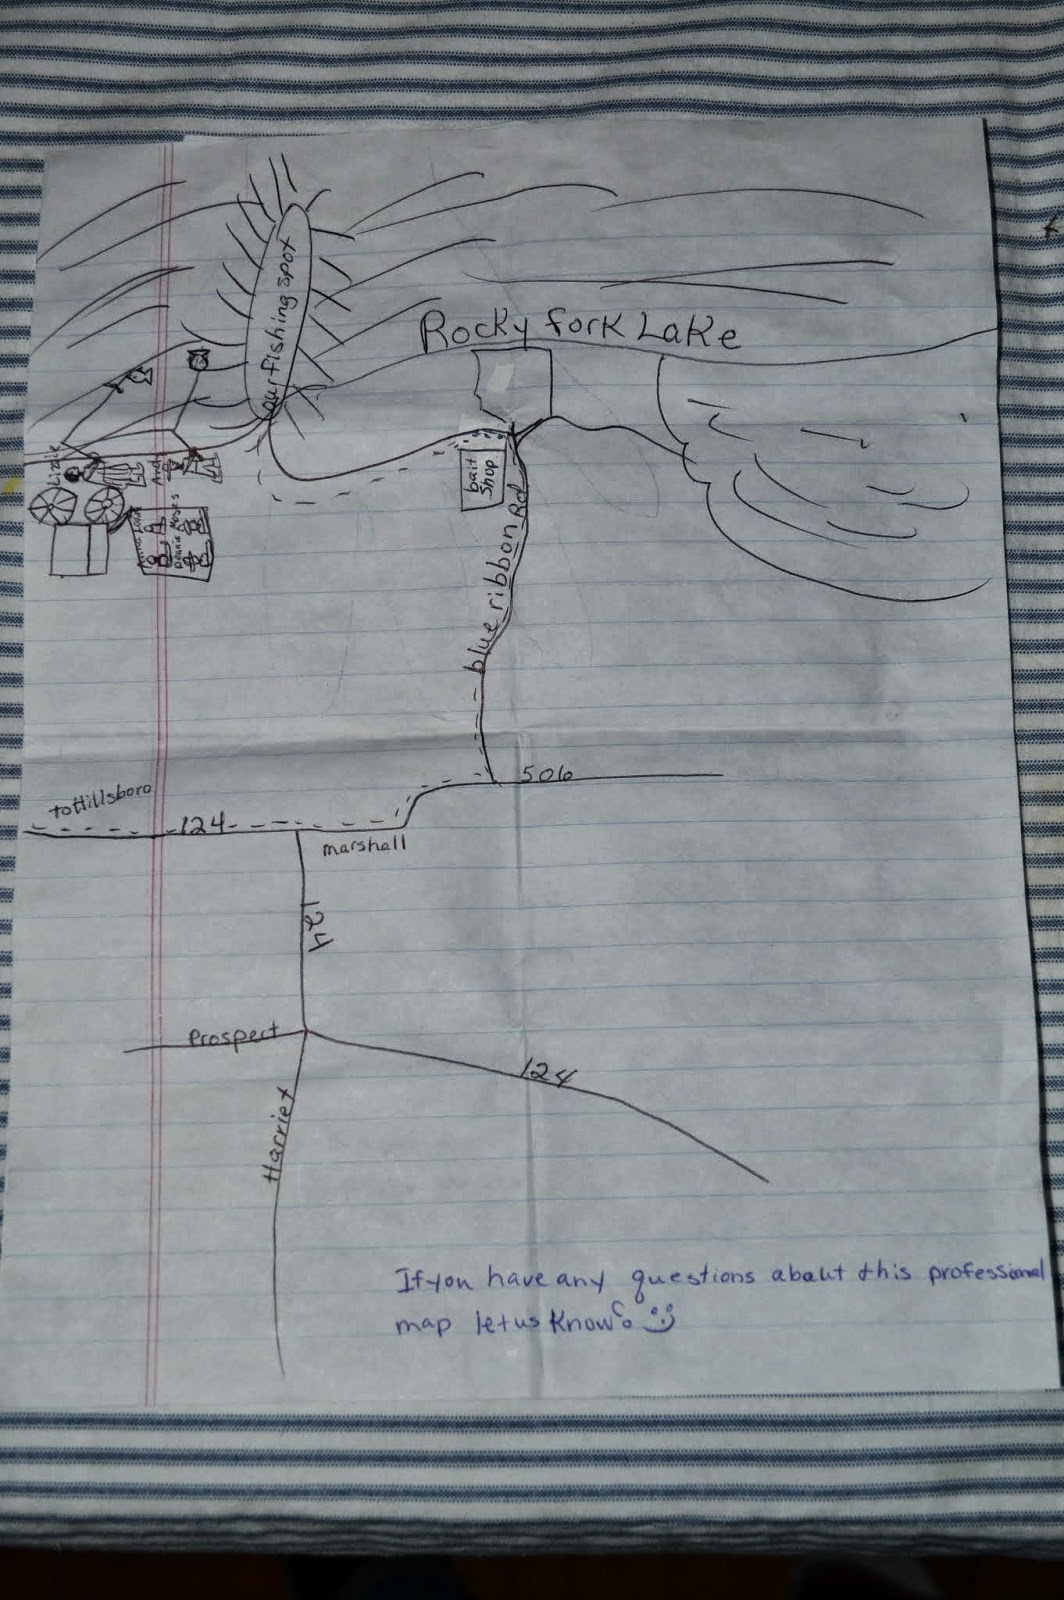 our fishing spot
Rocky fork Lake
Lizzie
Andy
bait
Shop
Moses
Dennis
blue ribbon Rd
506
to Hillsboro
124
marshall
124
Prospect
124
Harriet
If you have any questions about this professional
map let us know